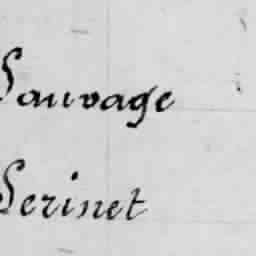 Sauvage
Serinet